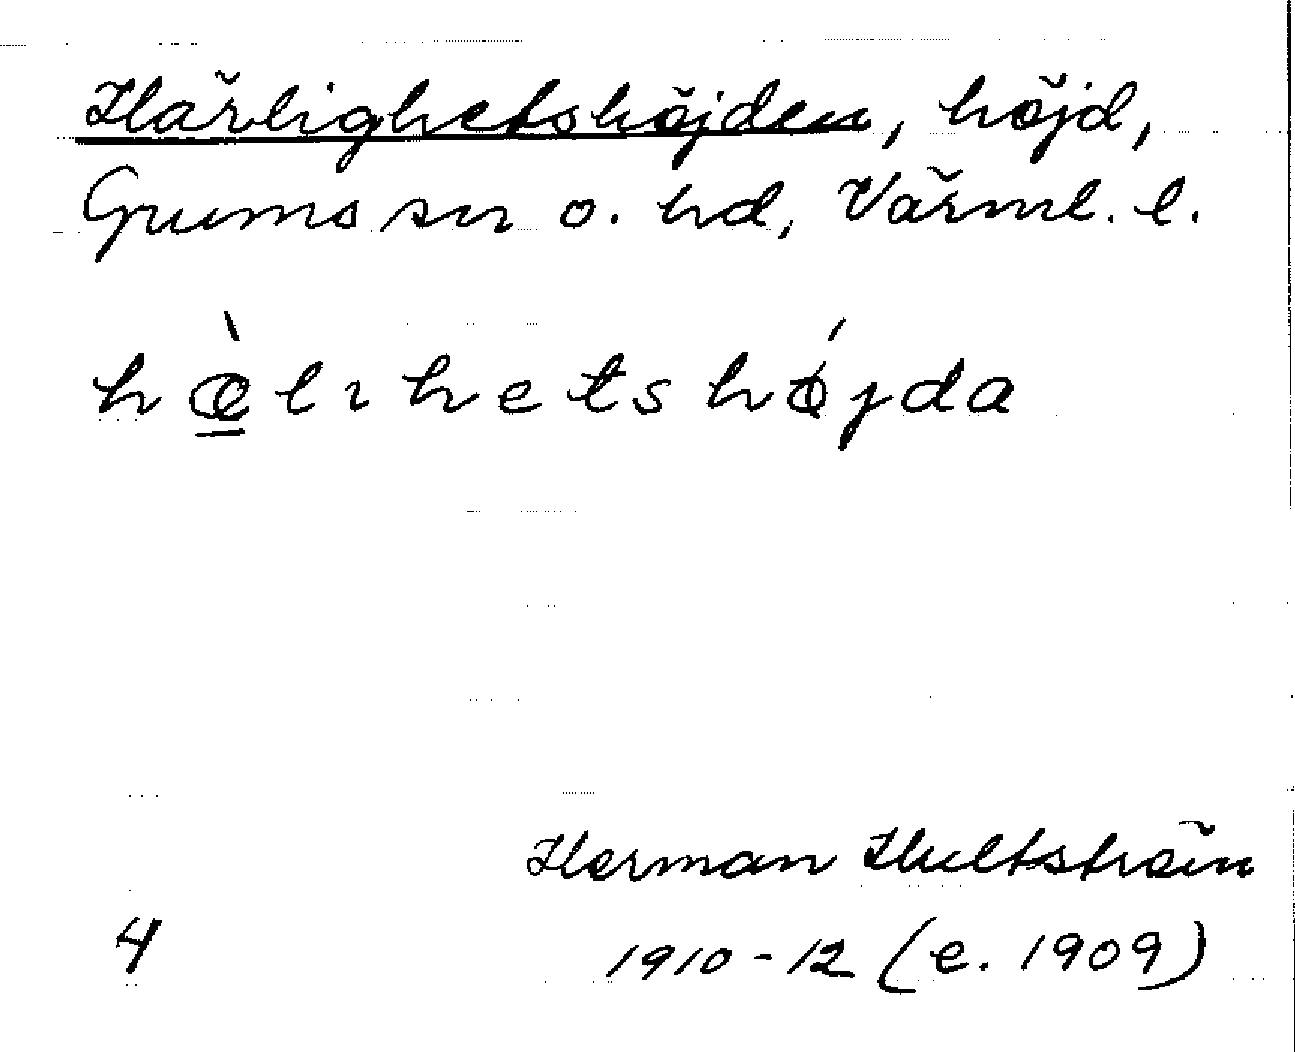 Härlighetshöjden, höjd,
Grums sn o. hd, Värml. l.
hæ̀lıhetshǿjda
Herman Hultström
4 1910-12 (e. 1909)